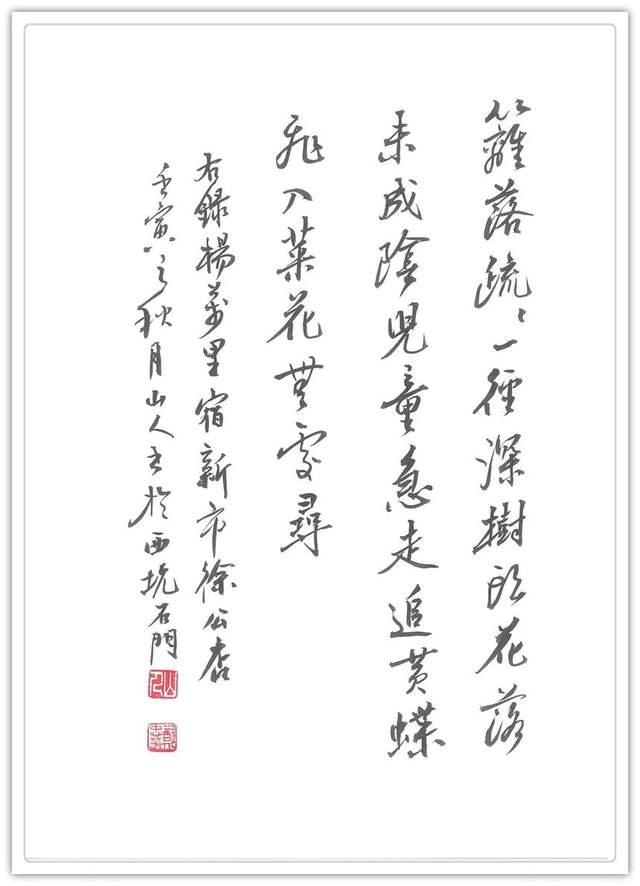 籬落疏〻一徑深樹頭花落
未成陰兒童急走追黃蝶
飛入菜花無處尋
右錄楊萬里宿新市徐公店
壬寅之秋月山人書於西坑石門
山人